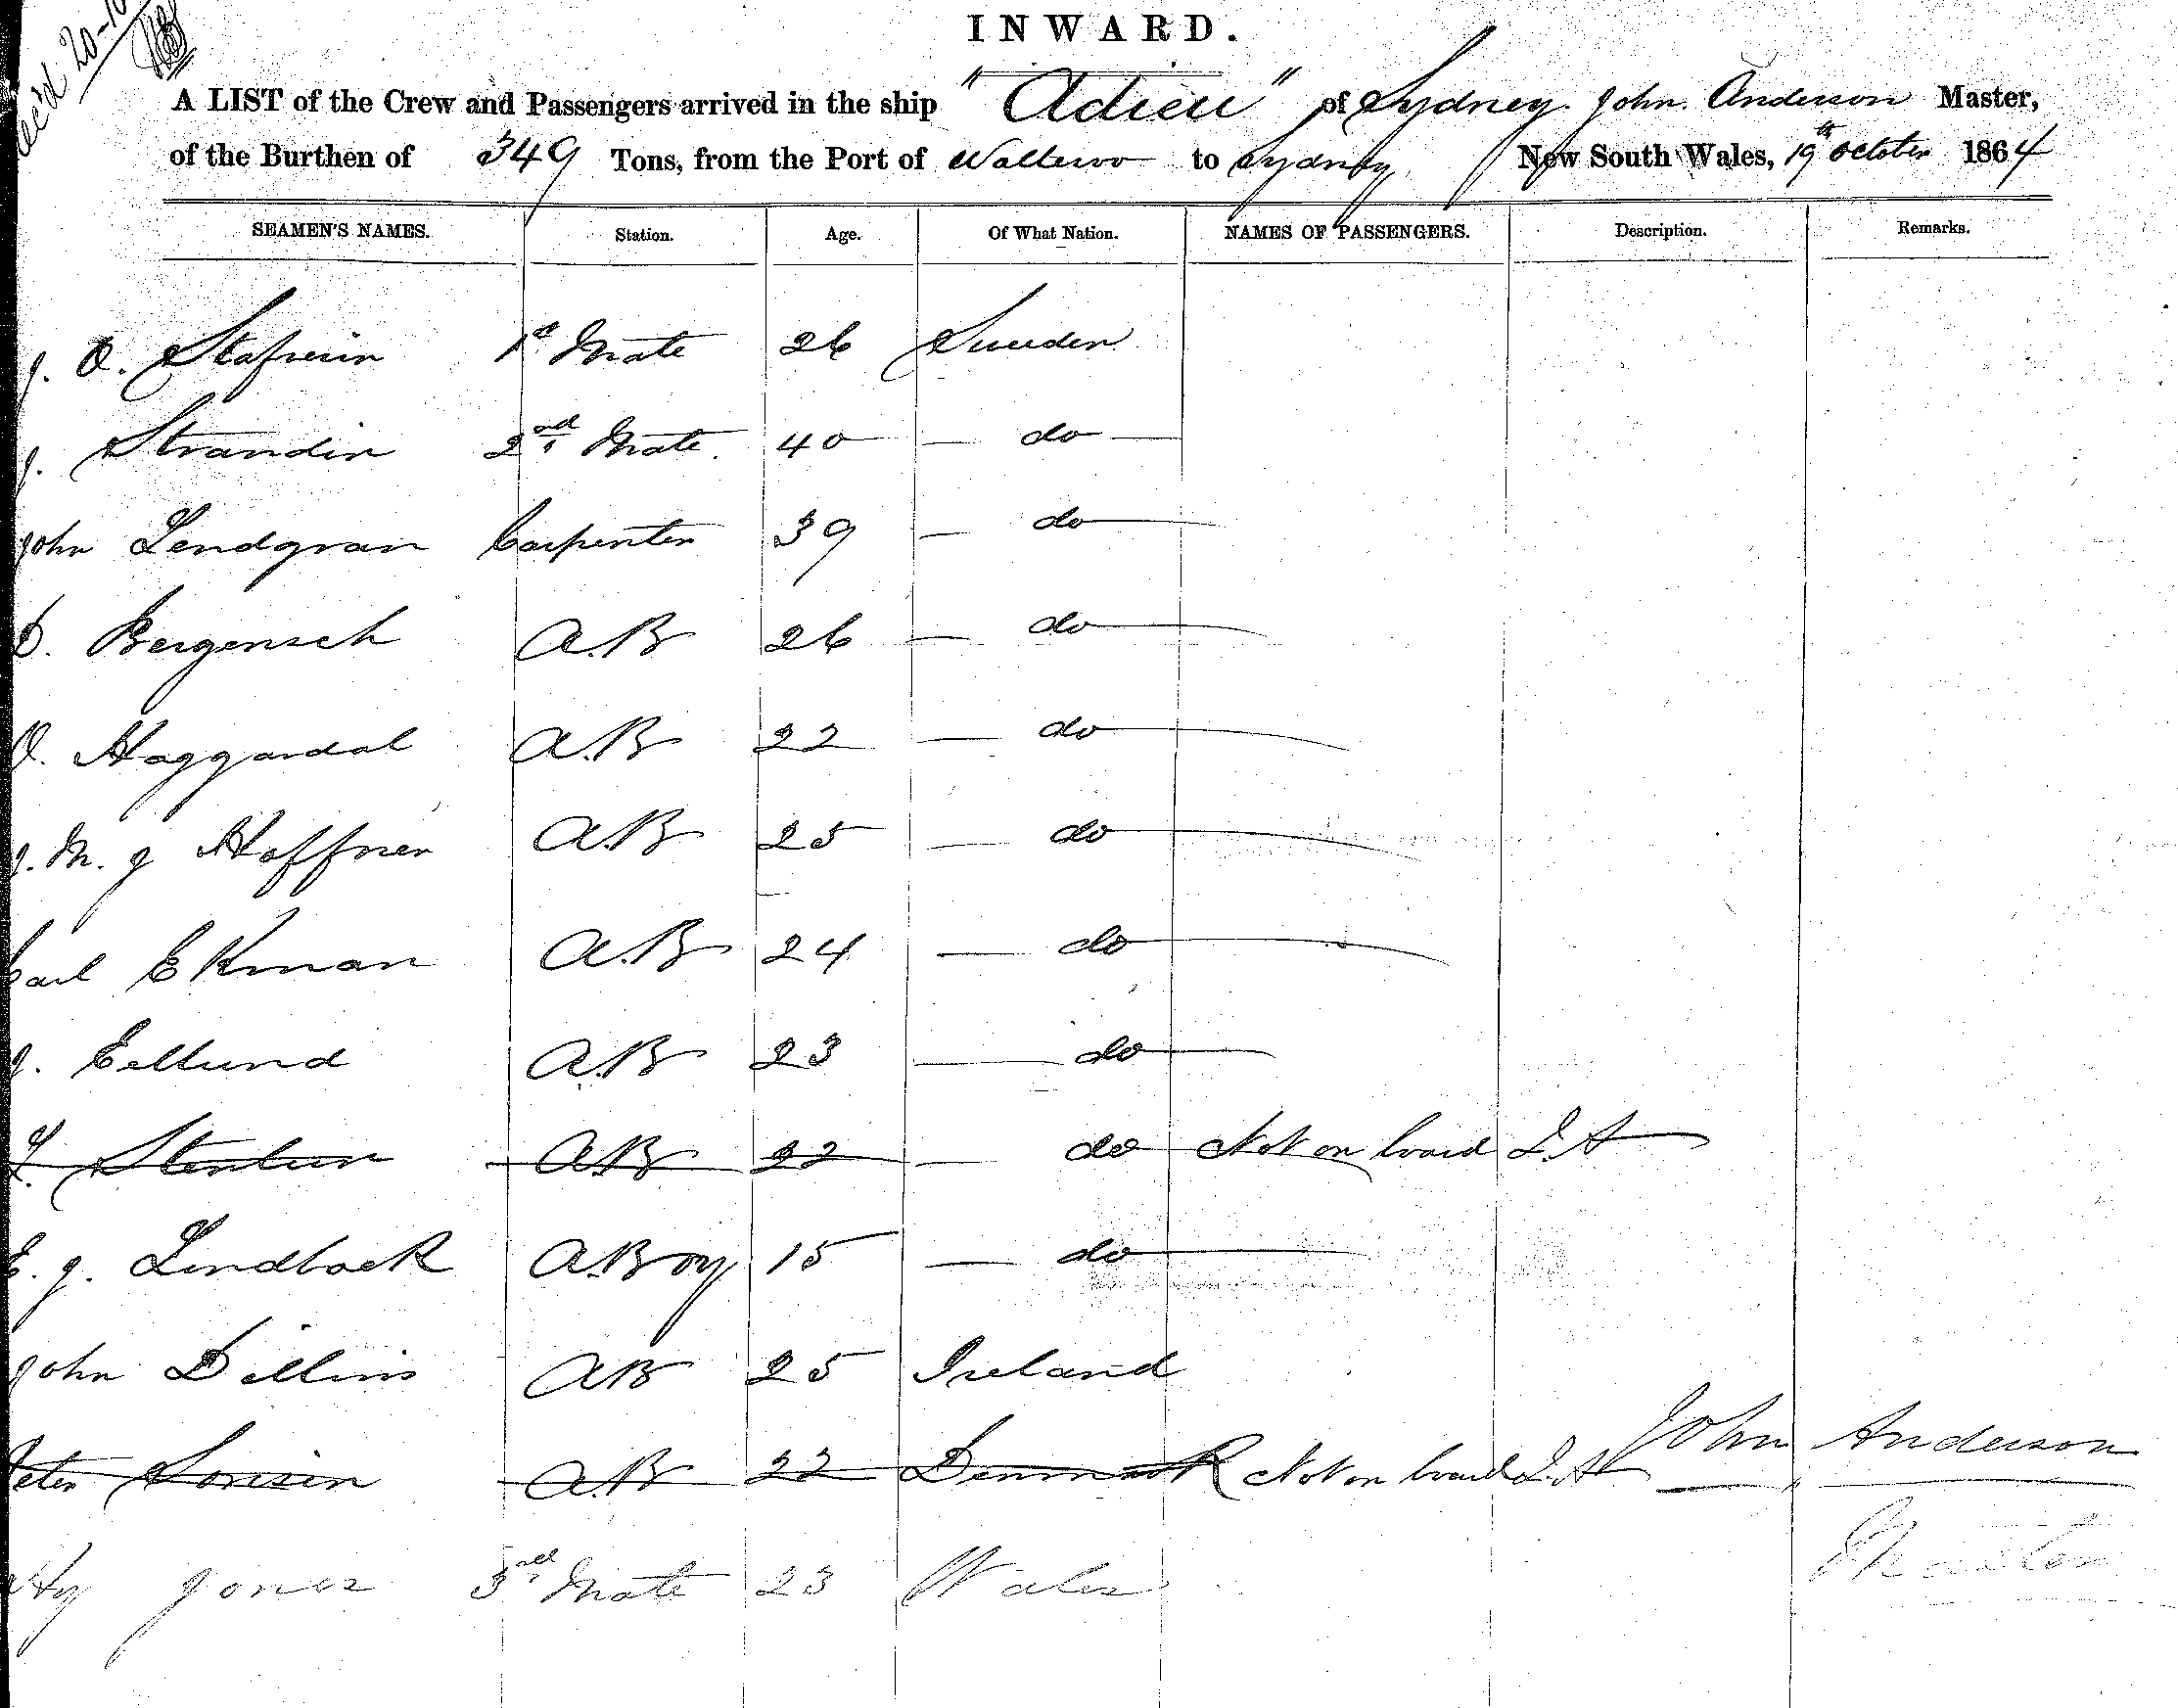 Rec'd 20-10
INWARD.
A LIST of the Crew and Passengers arrived in the ship "Adieu" of Sydney John Anderson Master,
of the Burthen of 349 Tons, from the Port of Walleroo to Sydney New South Wales, 19th October 1864
SEAMEN'S NAMES. Station. Age. Of What Nation. NAMES OF PASSENGERS. Description. Remarks.
J. O. 1st Mate 26 Sweden
J. Strandin 2nd Mate 40 — do —
John Lendgran Carpenter 39 — do
D. Bergensch A.B 26 — do
O. Haggardal A.B 22 — do
J. M. J Hoffner A.B 25 — do
Carl Ekman A.B 24 — do
J. Edlund A.B 23 — do
L. A.B 22 — do Not on board J. A
E. J. Lendbock A.Boy 15 — do
John Dillins AB 25 Ireland
Peter Sorisin A.B 22 Denmark Not on board J. A
John Anderson
Hy Jones 3rd Mate 23 Wales
Master